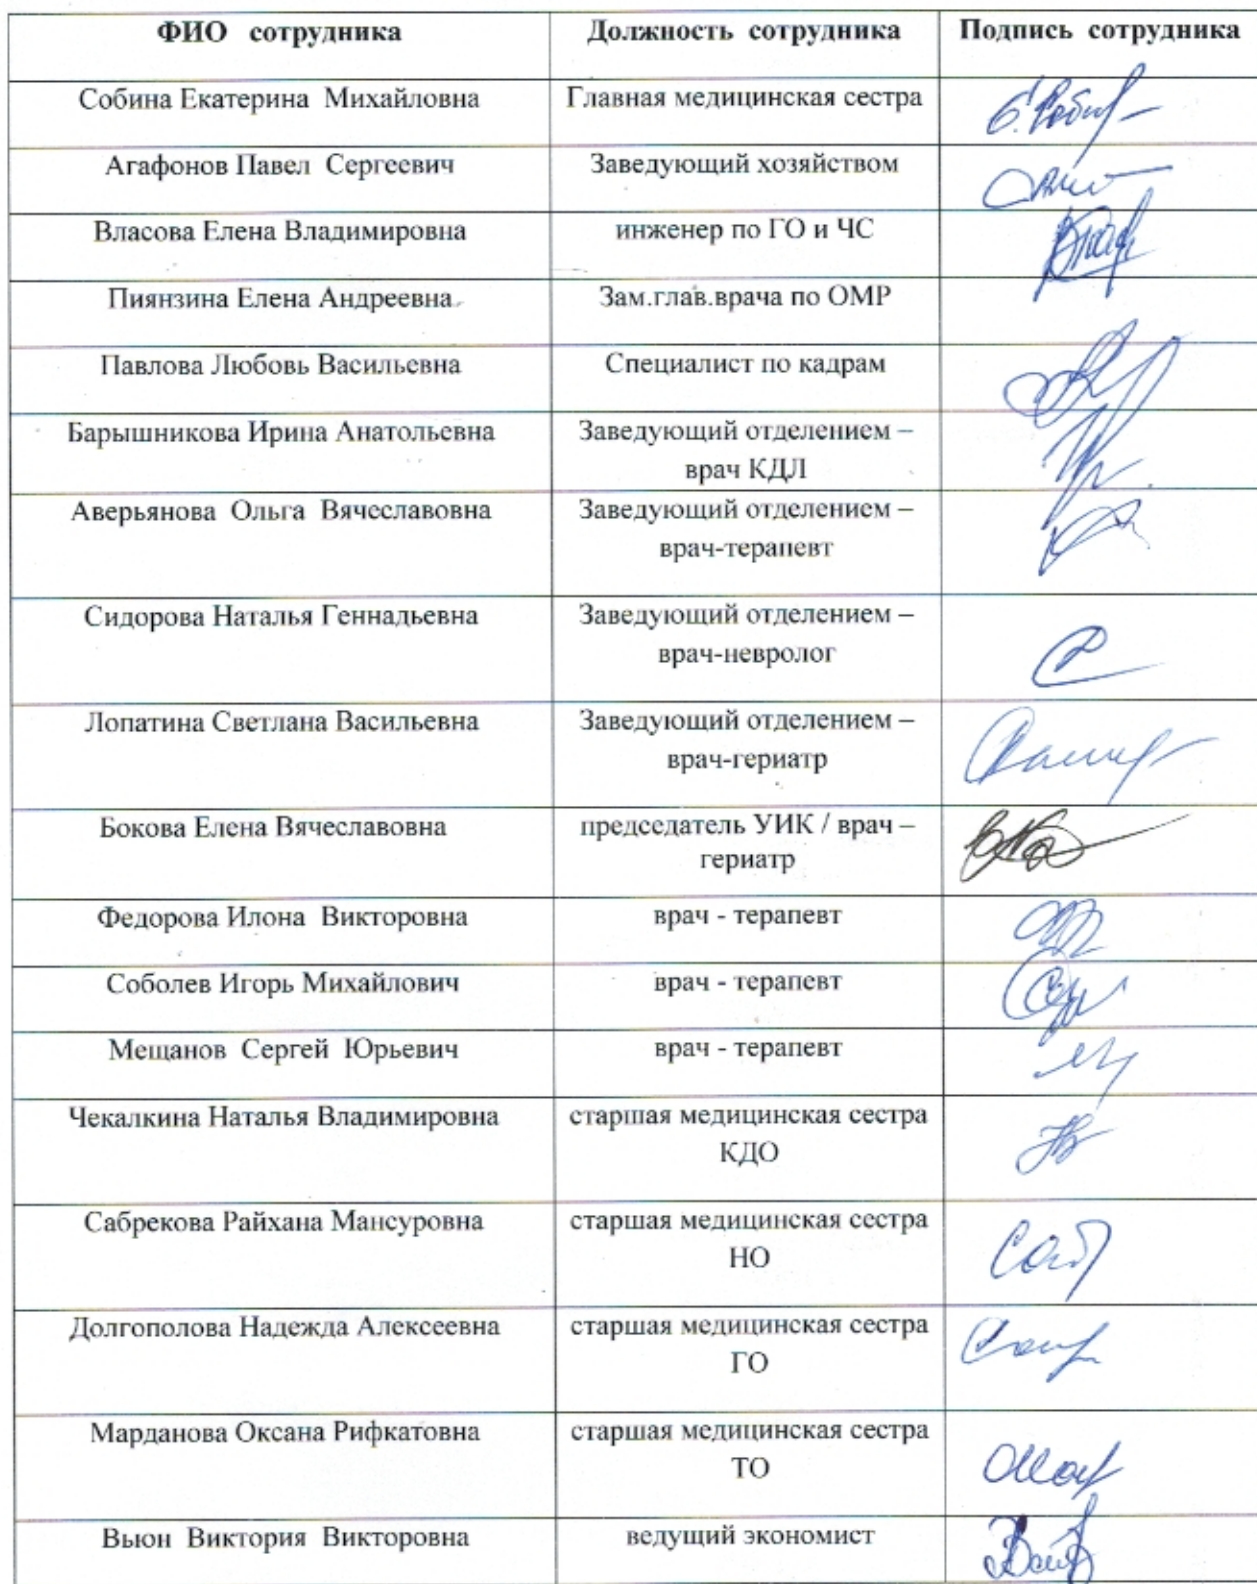 ФИО сотрудника Должность сотрудника Подпись сотрудника
Собина Екатерина Михайловна Главная медицинская сестра
Агафонов Павел Сергеевич Заведующий хозяйством
Власова Елена Владимировна инженер по ГО и ЧС
Пиянзина Елена Андреевна Зам.глав.врача по ОМР
Павлова Любовь Васильевна Специалист по кадрам
Барышникова Ирина Анатольевна Заведующий отделением –
врач КДЛ
Аверьянова Ольга Вячеславовна Заведующий отделением –
врач-терапевт
Сидорова Наталья Геннадьевна Заведующий отделением –
врач-невролог
Лопатина Светлана Васильевна Заведующий отделением –
врач-гериатр
Бокова Елена Вячеславовна председатель УИК / врач –
гериатр
Федорова Илона Викторовна врач - терапевт
Соболев Игорь Михайлович врач - терапевт
Мещанов Сергей Юрьевич врач - терапевт
Чекалкина Наталья Владимировна старшая медицинская сестра
КДО
Сабрекова Райхана Мансуровна старшая медицинская сестра
НО
Долгополова Надежда Алексеевна старшая медицинская сестра
ГО
Марданова Оксана Рифкатовна старшая медицинская сестра
ТО
Вьюн Виктория Викторовна ведущий экономист